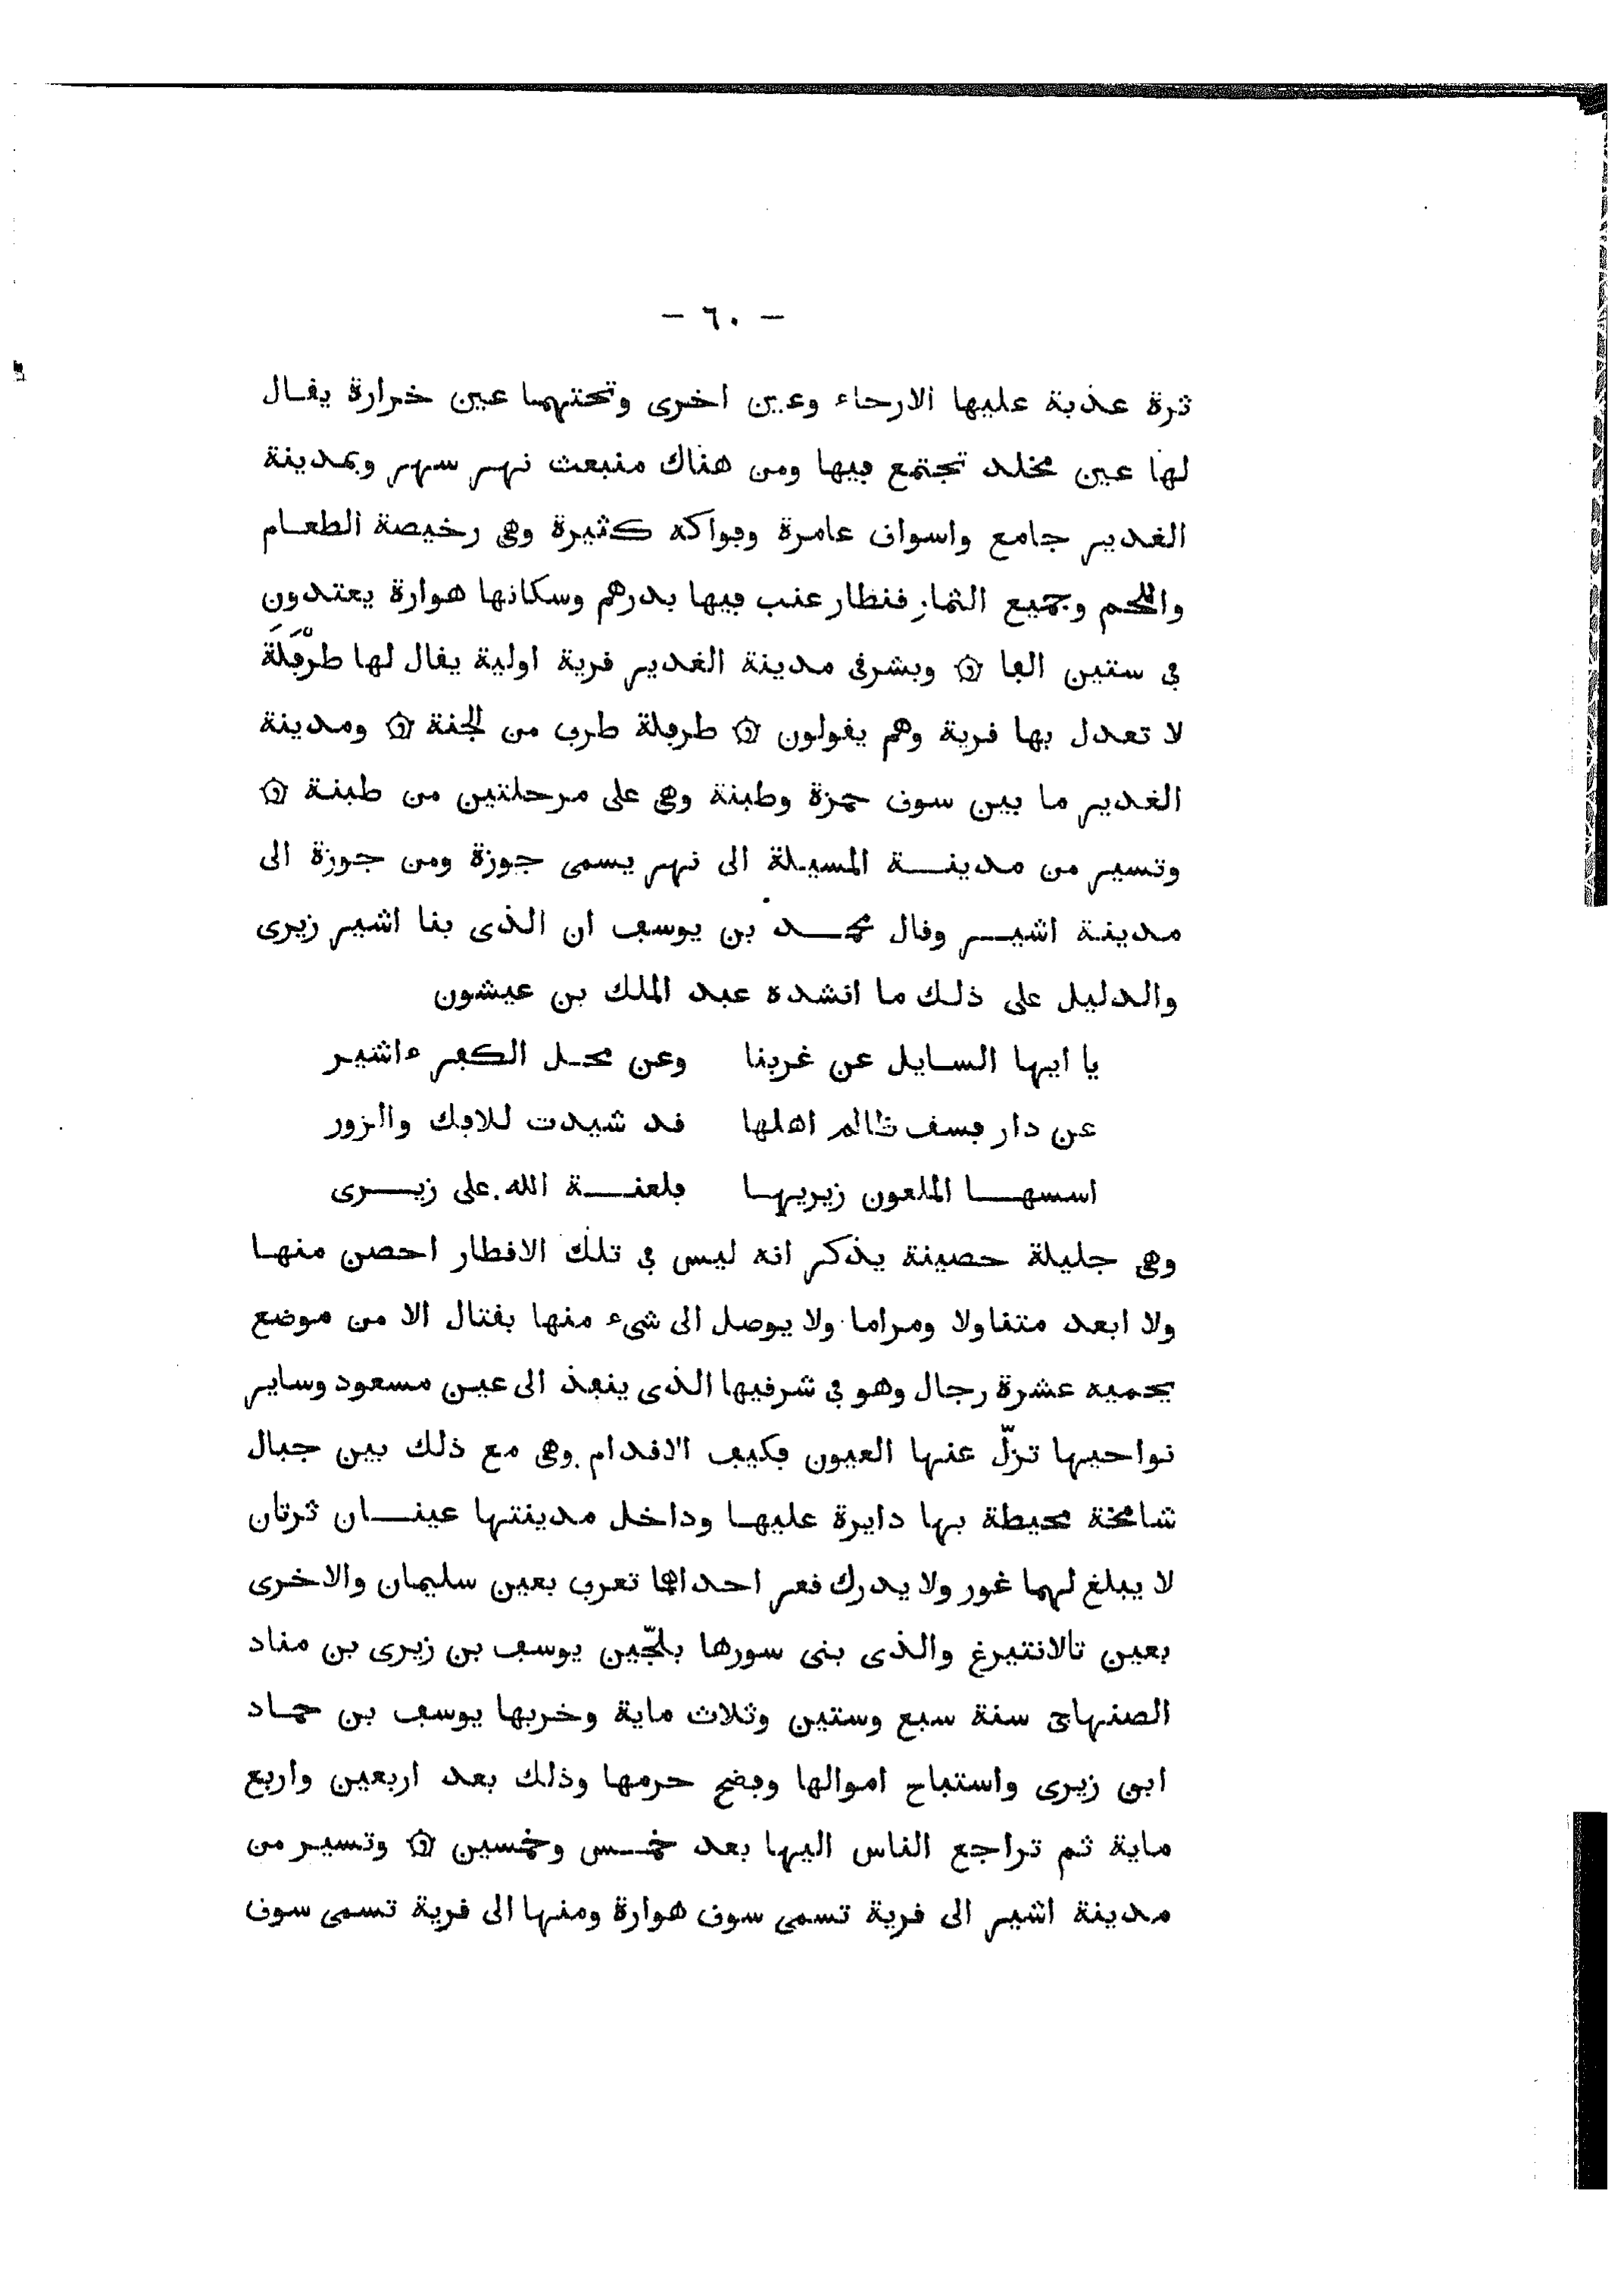 - ٦٠ -
ثرة عذبة عليها الارحاء وعين اخرى وتحتهما عين خرارة يقال
لها عين مخلد تجتمع فيها ومن هناك منبعث نهر سهر وبمدينة
الغدير جامع واسواق عامرة وفواكه كثيرة وهى رخيصة الطعام
واللحم وجميع الثمار قنطار عنب فيها بدرهم وسكانها هوارة يعتدون
فى ستين الفا ۞ وبشرقى مدينة الغدير قرية اولية يقال لها طرّفَلَة
لا تعدل بها قرية وهم يقولون ۞ طرفلة طرف من الجنة ۞ ومدينة
الغدير ما بين سوق حمزة وطبنة وهى على مرحلتين من طبنة ۞
وتسير من مدينة المسيلة الى نهر يسمى جوزة ومن جوزة الى
مدينة اشير وقال محمد بن يوسف ان الذى بنا اشير زيرى
والدليل على ذلك ما انشده عبد الملك بن عيشون
يا ايها السايل عن غربنا وعن محل الكفر ءاشير
عن دار فسق ظالم اهلها قد شيدت للافك والزور
اسسها الملعون زيريها فلعنة الله على زيرى
وهى جليلة حصينة يذكر انه ليس فى تلك الاقطار احصن منها
ولا ابعد متناولا ومراما ولا يوصل الى شىء منها بقتال الا من موضع
يحميه عشرة رجال وهو فى شرقيها الذى ينفذ الى عين مسعود وساير
نواحيها تزلّ عنها العيون فكيف الاقدام وهى مع ذلك بين جبال
شامخة محيطة بها دايرة عليها وداخل مدينتها عينان ثرتان
لا يبلغ لهما غور ولا يدرك قعر احداهما تعرف بعين سليمان والاخرى
بعين تالانتيرغ والذى بنى سورها بلجّين يوسف بن زيرى بن مناد
الصنهاجى سنة سبع وستين وثلاث ماية وخربها يوسف بن حماد
ابن زيرى واستباح اموالها وفضح حرمها وذلك بعد اربعين واربع
ماية ثم تراجع الناس اليها بعد خمس وخمسين ۞ وتسير من
مدينة اشير الى قرية تسمى سوق هوارة ومنها الى قرية تسمى سوق